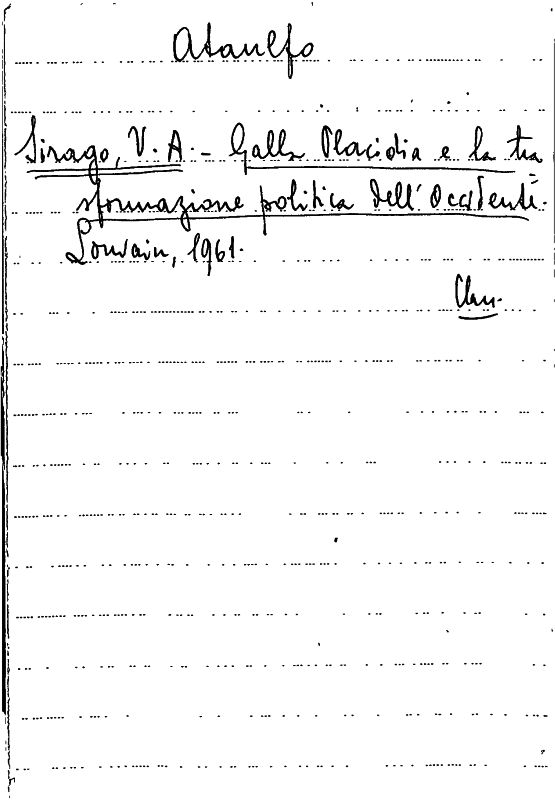 Ataulfo
Sirago, V. A. - Galla Placidia e la tra=
sformazione politica dell'Occidente.
Louvain, 1961.